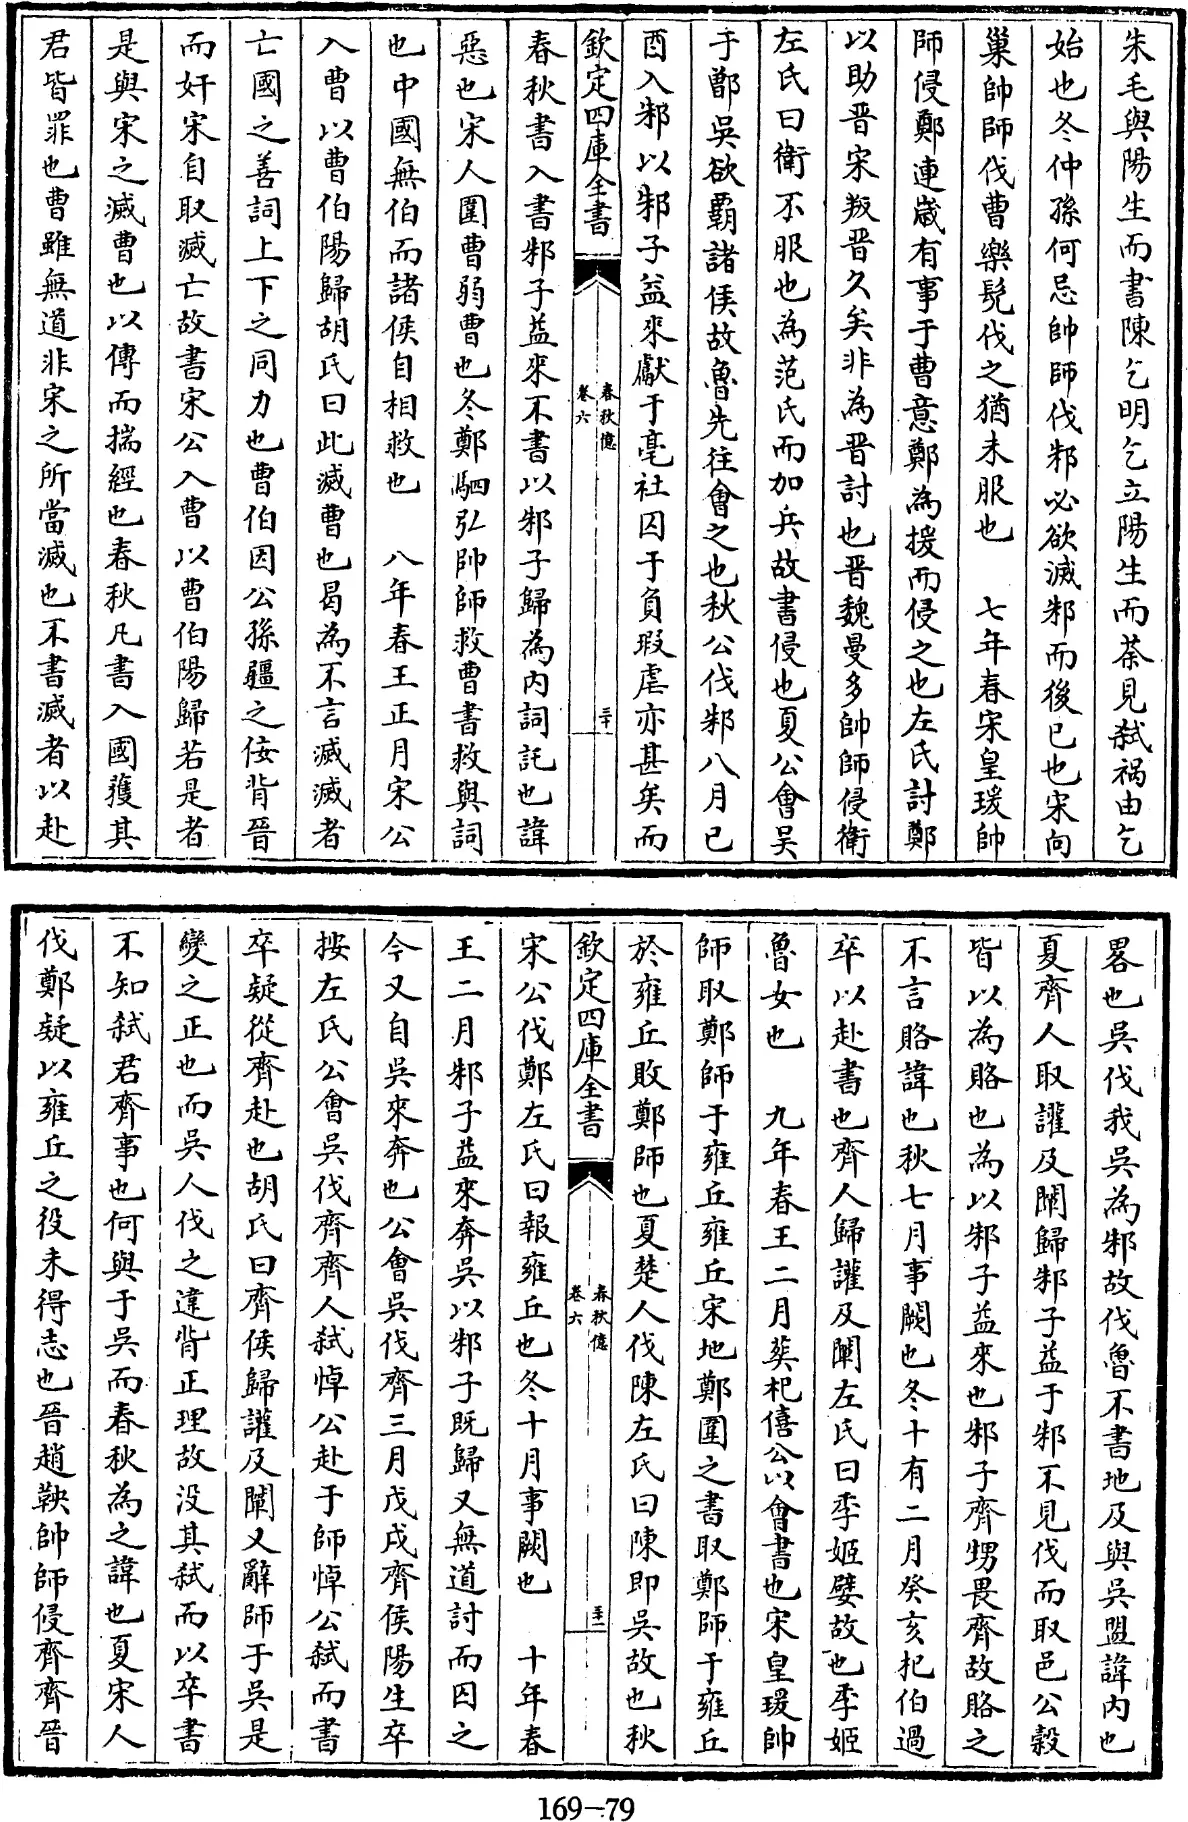 朱毛與陽生而書陳乞明乞立陽生而荼見弑禍由乞
始也冬仲孫何忌帥師伐邾必欲滅邾而後已也宋向
巢帥師伐曹樂髠伐之猶未服也　七年春宋皇瑗帥
師侵鄭連歲有事于曹意鄭為援而侵之也左氏討鄭
以助晋宋叛晋久矣非為晋討也晋魏曼多帥師侵衛
左氏曰衛不服也為范氏而加兵故書侵也夏公會吴
于鄫吴欲霸諸侯故魯先往會之也秋公伐邾八月已
酉入邾以邾子益來獻于亳社囚于負瑕虐亦甚矣而
欽定四庫全書
春秋億
卷六
三十
春秋書入書邾子益來不書以邾子歸為内詞託也諱
惡也宋人圍曹弱曹也冬鄭駟弘帥師救曹書救與詞
也中國無伯而諸侯自相救也　八年春王正月宋公
入曹以曹伯陽歸胡氏曰此滅曹也曷為不言滅滅者
亡國之善詞上下之同力也曹伯因公孫疆之佞背晉
而奸宋自取滅亡故書宋公入曹以曹伯陽歸若是者
是與宋之滅曹也以傳而揣經也春秋凡書入國獲其
君皆罪也曹雖無道非宋之所當滅也不書滅者以赴
畧也吴伐我吴為邾故伐魯不書地及與吴盟諱内也
夏齊人取讙及闡歸邾子益于邾不見伐而取邑公榖
皆以為賂也為以邾子益來也邾子齊甥畏齊故賂之
不言賂諱也秋七月事闕也冬十有二月癸亥杞伯過
卒以赴書也齊人歸讙及闡左氏曰季姬嬖故也季姬
魯女也　九年春王二月葬杞僖公以會書也宋皇瑗帥
師取鄭師于雍丘雍丘宋地鄭圍之書取鄭師于雍丘
於雍丘敗鄭師也夏楚人伐陳左氏曰陳即吴故也秋
欽定四庫全書
春秋億
卷六
三十一
宋公伐鄭左氏曰報雍丘也冬十月事闕也　十年春
王二月邾子益來奔吴以邾子既歸又無道討而囚之
今又自吴來奔也公會吴伐齊三月戊戌齊侯陽生卒
按左氏公會吴伐齊齊人弑悼公赴于師悼公弑而書
卒疑從齊赴也胡氏曰齊侯歸讙及闡又辭師于吴是
變之正也而吴人伐之違背正理故没其弑而以卒書
不知弑君齊事也何與于吴而春秋為之諱也夏宋人
伐鄭疑以雍丘之役未得志也晉趙鞅帥師侵齊齊晉
169-79